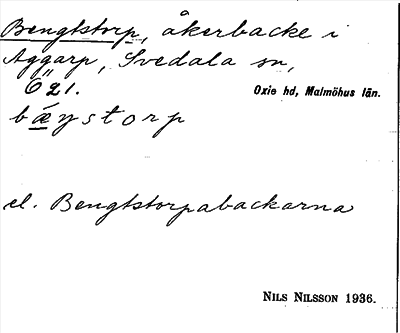 Bengtstorp, åkerbacke i
Aggarp, Svedala sn,
Ö 21. Oxie hd, Malmöhus län.
bæŋstorp
el. Bengtstorpabackarna
NILS NILSSON 1936.